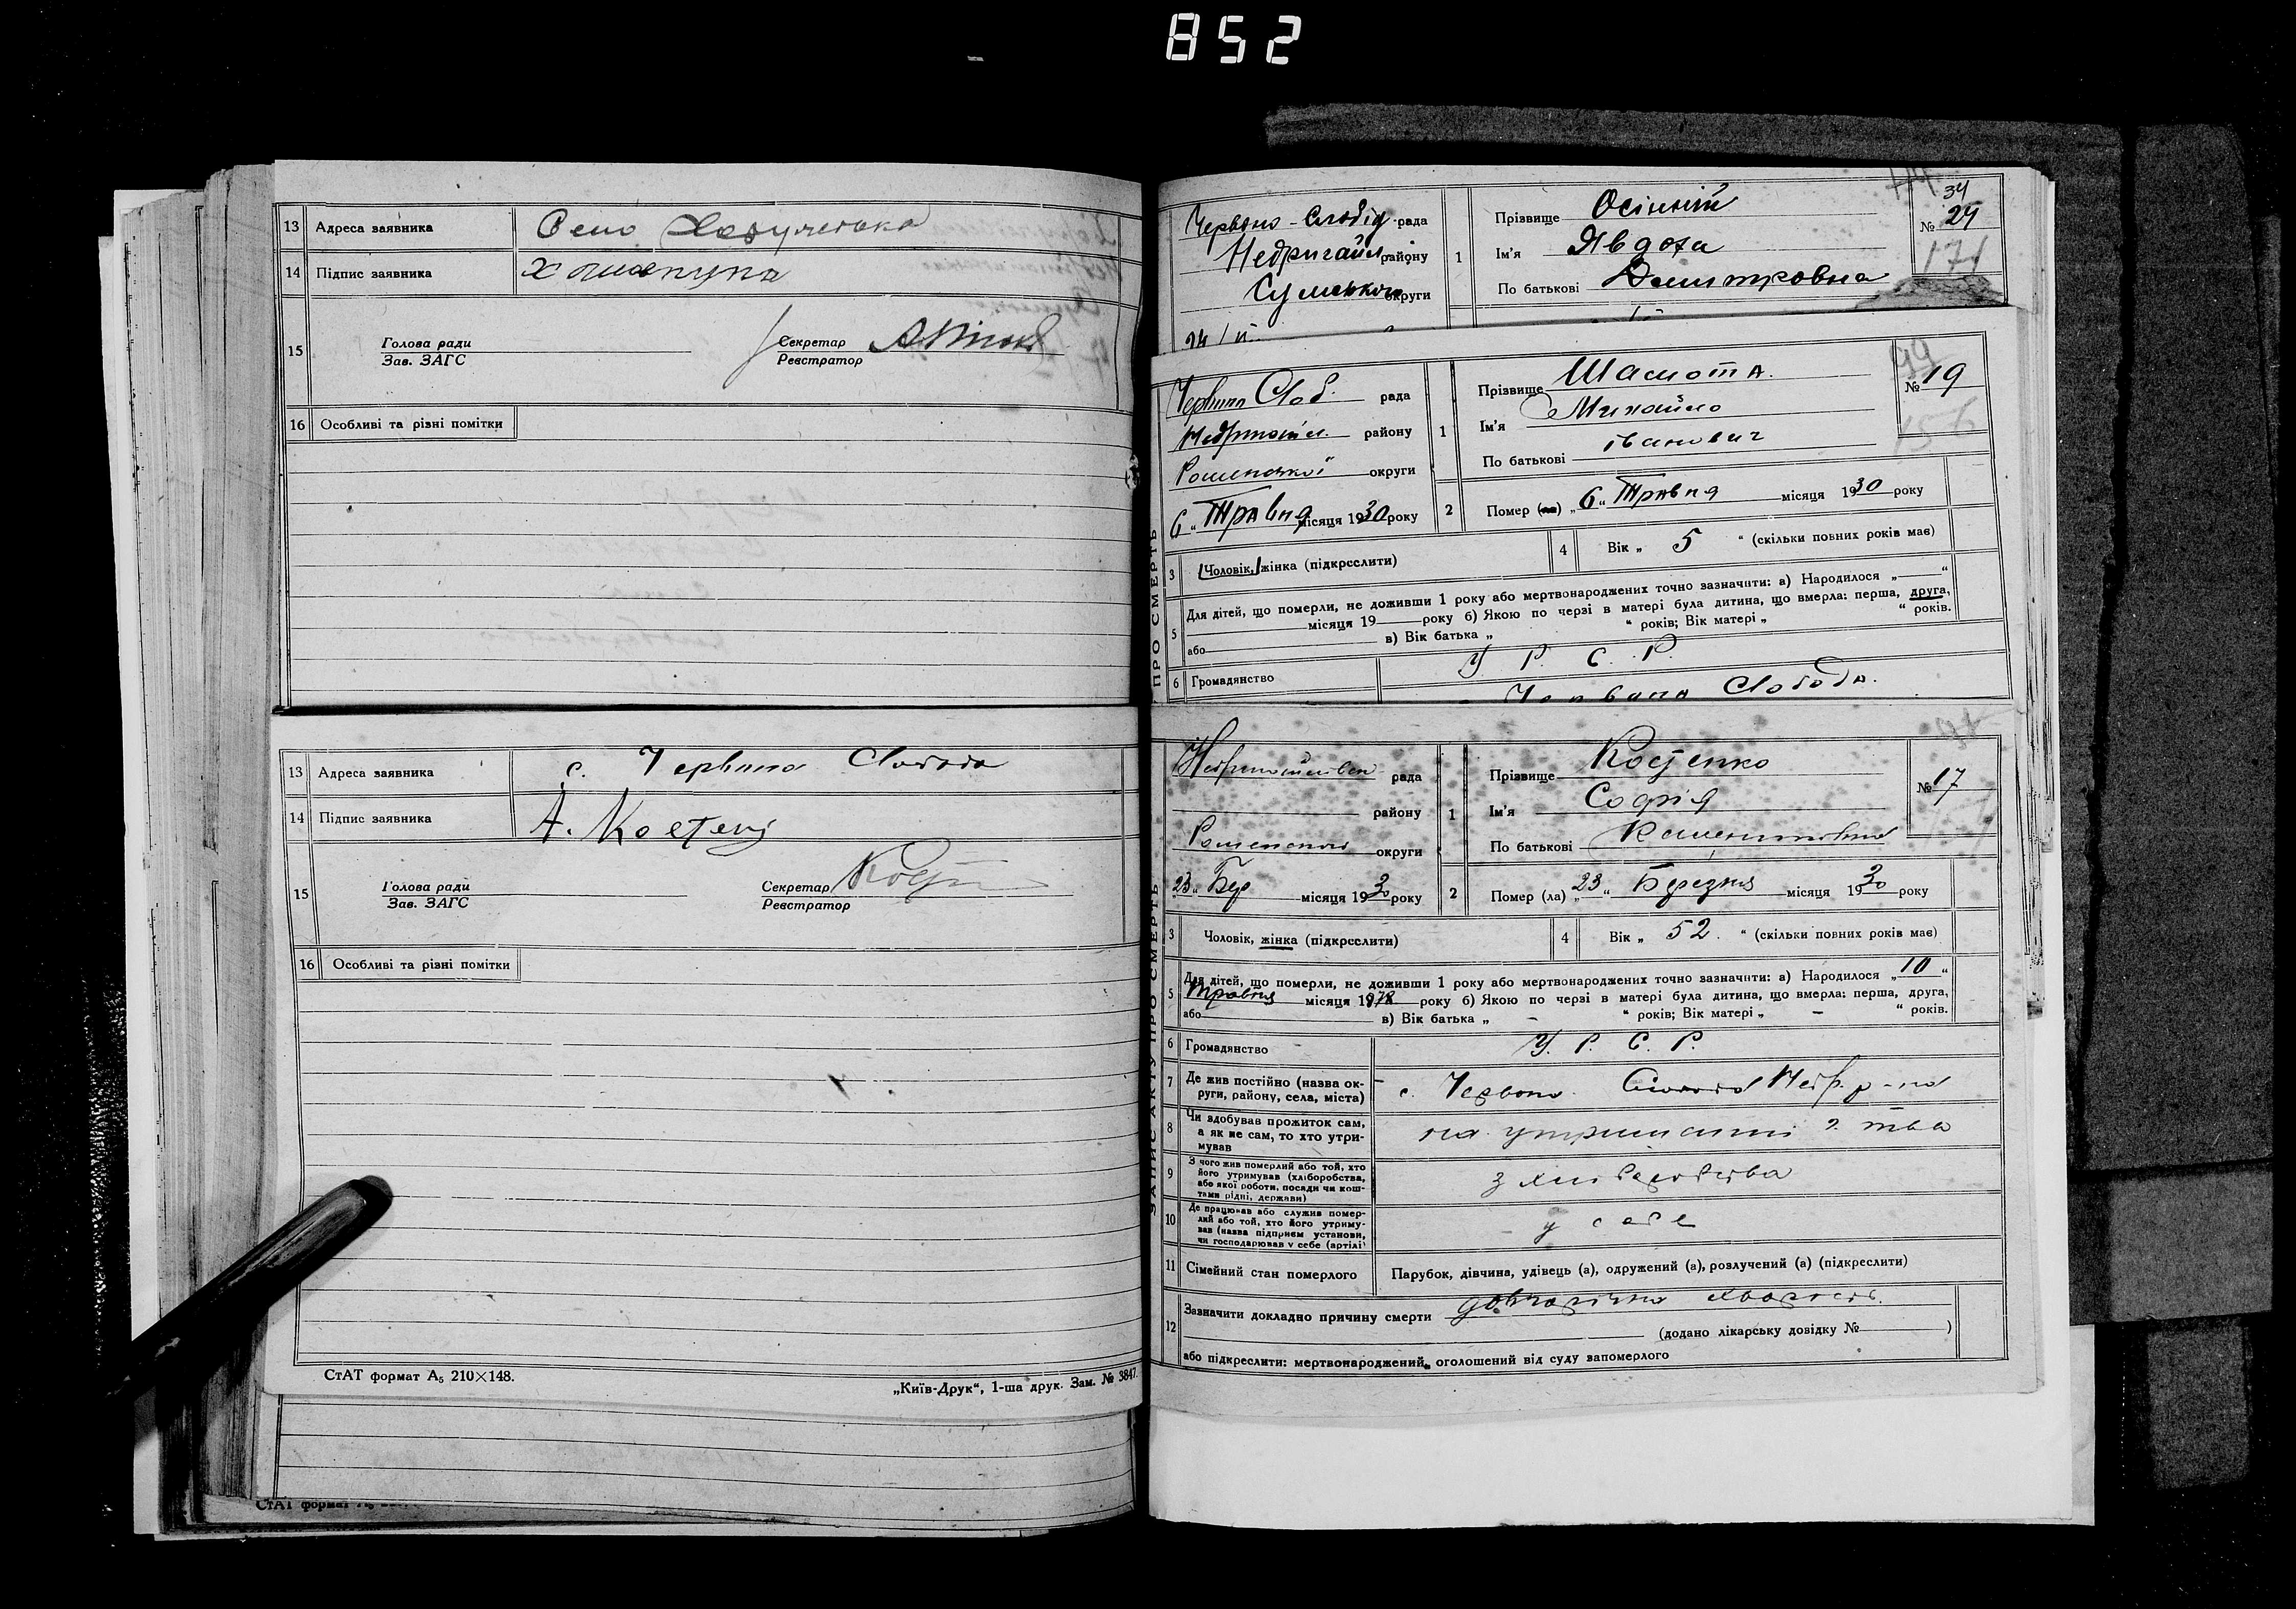 852
13 Адреса заявника Село
14 Підпис заявника
15 Голова ради
Зав. ЗАГС
Секретар
Реєстратор
16 Особливі та різні помітки
13 Адреса заявника с. Червона Слобода
14 Підпис заявника А. Костенко
15 Голова ради
Зав. ЗАГС
Секретар
Реєстратор
16 Особливі та різні помітки
СтАТ формат А₅ 210×148.
„Київ-Друк“, 1-ша друк. Зам. № 3847.
СтАТ формат А₅
Червоно-Слобід рада
Недригайл району
Сумської округи
24/
1 Прізвище Осінній
Ім'я Явдоха
По батькові Дмитровна
34
№ 24
171
Червона Слоб. рада
Недригайл. району
Роменської округи
6 „ Травня місяця 1930 року
1 Прізвище Шамота.
Ім'я Михайло
По батькові Іванович
99
№ 19
156
2 Помер (ла) „ 6 “ Травня місяця 1930 року
ПРО СМЕРТЬ
3 Чоловік, жінка (підкреслити)
4 Вік „ 5 “ (скільки повних років має)
5 Для дітей, що померли, не доживши 1 року або мертвонароджених точно зазначити: а) Народилося „ “
місяця 19 року б) Якою по черзі в матері була дитина, що вмерла: перша, друга,
або в) Вік батька „ “ років; Вік матері „ “ років.
6 Громадянство У. Р. С. Р.
Червона Слобода.
рада
району
Роменської округи
23 „ Бер місяця 1930 року
1 Прізвище Костенко
Ім'я Софія
По батькові
№ 17
2 Помер (ла) „ 23 “ Березня місяця 1930 року
ЗАПИС АКТУ ПРО СМЕРТЬ
3 Чоловік, жінка (підкреслити)
4 Вік „ 52. “ (скільки повних років має)
5 Для дітей, що померли, не доживши 1 року або мертвонароджених точно зазначити: а) Народилося „ 10 “
Травня місяця 1878 року б) Якою по черзі в матері була дитина, що вмерла: перша, друга,
або в) Вік батька „ – “ років; Вік матері „ – “ років.
6 Громадянство У. Р. С. Р.
7 Де жив постійно (назва округи, району, села, міста) с. Червона Слобода Недр. р-на
8 Чи здобував прожиток сам, а як не сам, то хто утримував на утриманні г. тва
9 З чого жив померлий або той, хто його утримував (хліборобства, або якої роботи, посади чи коштами рідні, держави) з хліборобства
10 Де працював або служив померлий або той, хто його утримував (назва підприєм установи, чи господарював у себе (артілі) у себе
11 Сімейний стан померлого Парубок, дівчина, удівець (а), одружений (а), розлучений (а) (підкреслити)
12 Зазначити докладно причину смерти довгорічна хворість.
(додано лікарську довідку № )
або підкреслити: мертвонароджений, оголошений від суду запомерлого